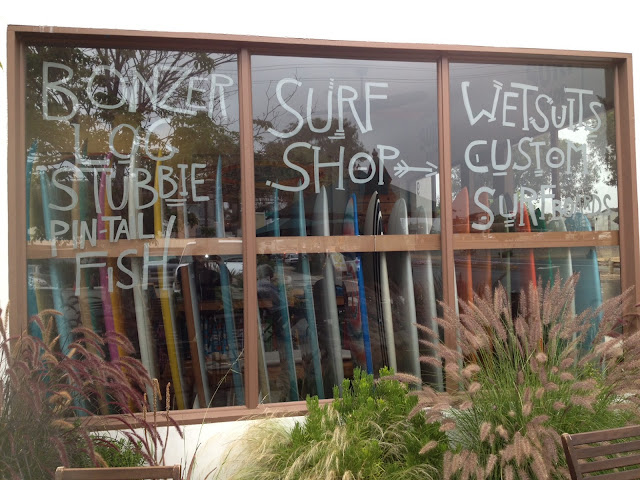 BONZER
LOG
STUBBIE
PINTALY
FISH
SURF
SHOP
WETSUITS
CUSTOM
SURFBOARDS